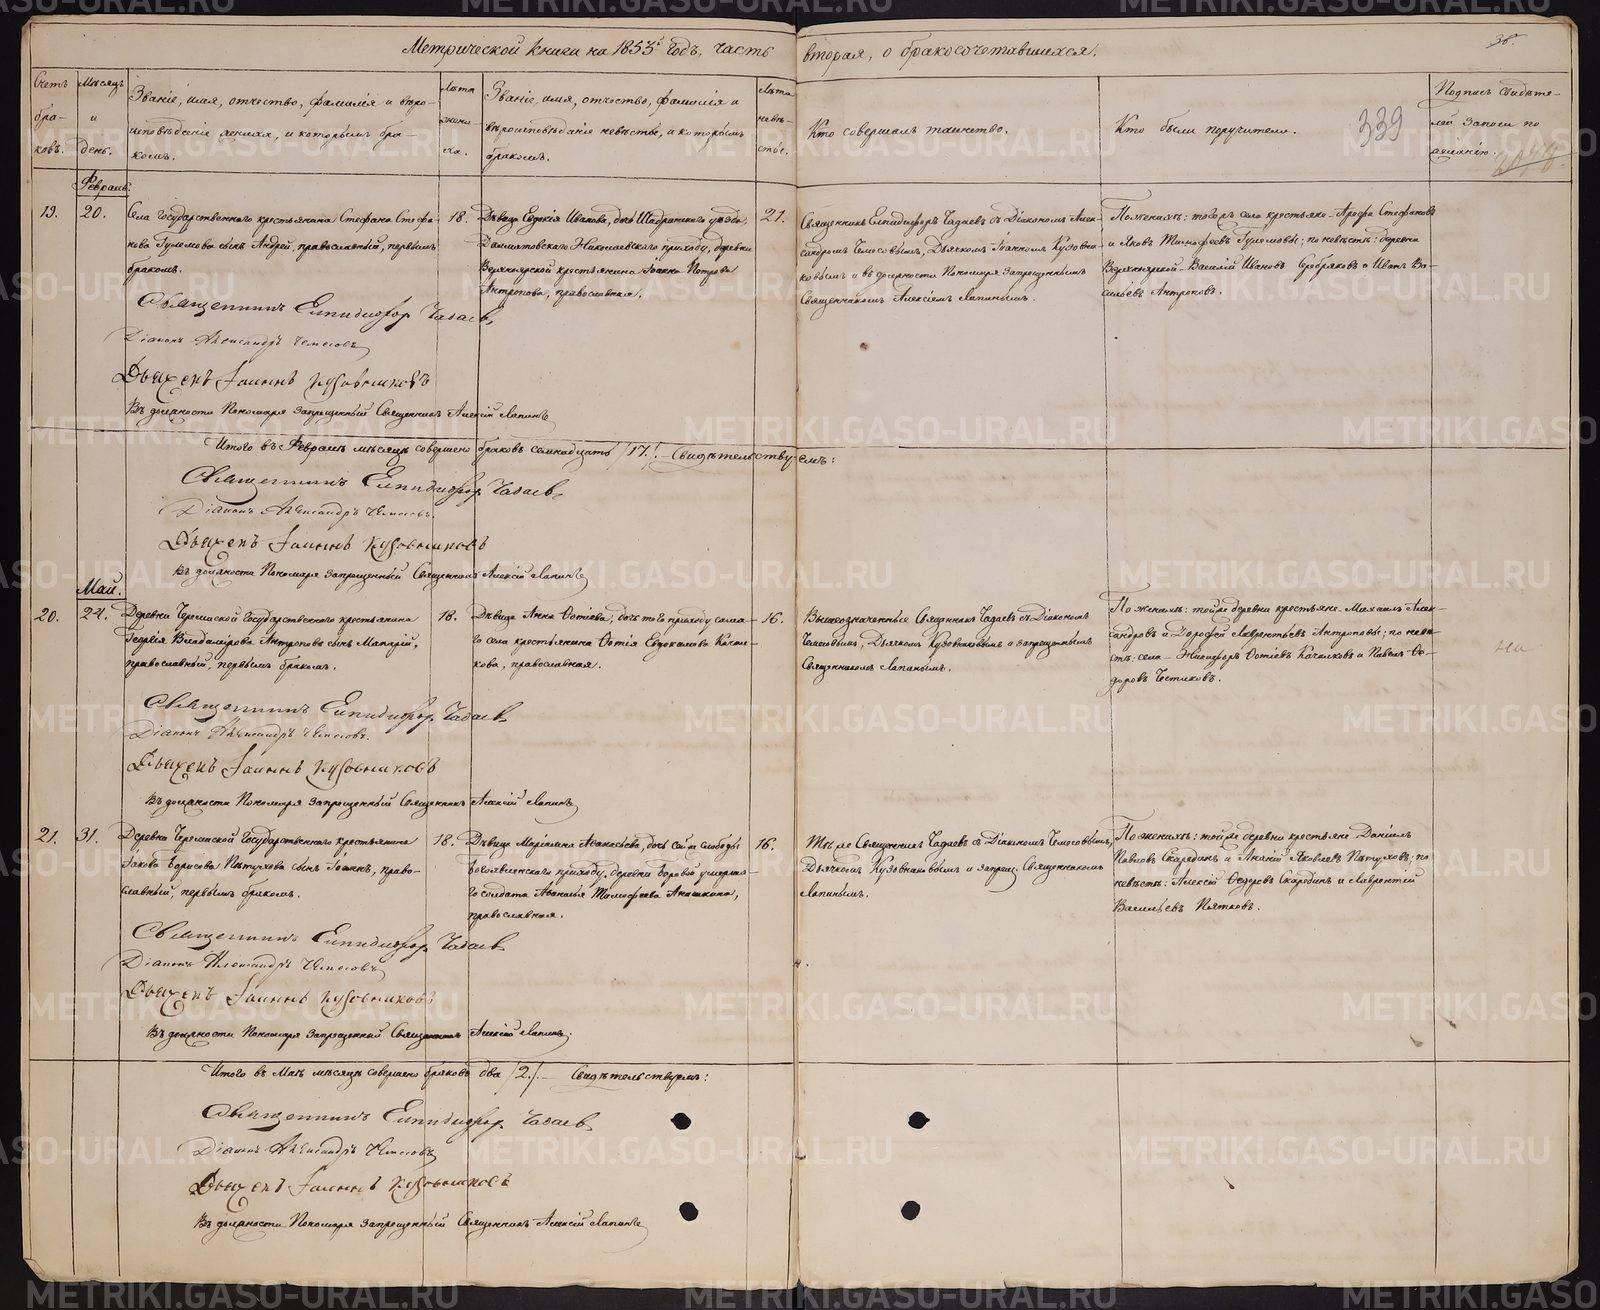 Метрической книги на 1853й годъ, часть вторая, о бракосочетавшихся.
38.
Счетъ браковъ.
Мѣсяцъ и день.
Званіе, имя, отчество, фамилія и вѣроисповѣданіе жениха, и которымъ бракомъ.
Лѣта жениха.
Званіе, имя, отчество, фамилія и вѣроисповѣданіе невѣсты, и которымъ бракомъ.
Лѣта невѣсты.
Кто совершалъ таинство.
Кто были поручители.
339
Подпись свидѣтелей записи по желанію.
Февраль.
19.
20.
Села Государственнаго крестьянина Стефана Стефанова сынъ Андрей, православный, первымъ
бракомъ.
18.
Дѣвица Евдокія Иванова, дочь Шадринскаго уѣзда,
Далматовскаго Николаевскаго приходу, деревни
Верхноярской крестьянина Іоанна Петрова
Антропова, православная.
21.
Священникъ Елпидифоръ Чадаевъ съ Діакономъ Александромъ Чемесовымъ, Дьячкомъ Іоанномъ Кузовниковымъ и въ должности Пономаря запрещеннымъ
Священникомъ Алексіемъ Лапинымъ.
По женихѣ: тогожъ села крестьяне Арефа Стефановъ
и Яковъ Тимофеевъ; по невѣстѣ: деревни
Верхноярской Василій Ивановъ Серебряковъ и Иванъ Васильевъ Антроповъ.
Священникъ Елпидифор Чадаевъ
Діаконъ Александръ Чемесовъ
Дьячекъ Іоаннъ Кузовниковъ
Въ должности Пономаря запрещенный Священникъ Алексій Лапинъ
Итого въ Февралѣ мѣсяцѣ совершено браковъ семнадцать /17./ Свидѣтельствуемъ:
Священникъ Елпидифор Чадаевъ
Діаконъ Александръ Чемесовъ.
Дьячекъ Іоаннъ Кузовниковъ
Въ должности Пономаря запрещенный Священникъ Алексій Лапинъ
Май.
20.
24.
Деревни Государственнаго крестьянина
Георгія Владимірова Антропова сынъ Макарій,
православный, первымъ бракомъ.
18.
Дѣвица Анна Ѳотіева, дочь того приходу самаго села крестьянина Ѳотія Евдокимова Качалкова, православная.
16.
Вышеозначенные Священникъ Чадаевъ съ Діакономъ
Чемесовымъ, Дьячкомъ Кузовниковымъ и запрещеннымъ
Священникомъ Лапинымъ.
По женихѣ: тойже деревни крестьяне Михаилъ Александровъ и Дорофей Лаврентьевъ Антроповы; по невѣстѣ: села Никифоръ Ѳотіевъ Качалковъ и Павелъ Ѳедоровъ.
Священникъ Елпидифор Чадаевъ
Діаконъ Александръ Чемесовъ.
Дьячекъ Іоаннъ Кузовниковъ
Въ должности Пономаря запрещенный Священникъ Алексій Лапинъ
21.
31.
Деревни Государственнаго крестьянина
Іакова Борисова Пѣтухова сынъ Іоаннъ, православный, первымъ бракомъ.
18.
Дѣвица Маріамна Аѳанасьева, дочь слободы
Богоявленскаго приходу, деревни Боровой умершаго солдата Аѳанасья Тимофеева,
православная.
16.
Тѣ же Священникъ Чадаевъ съ Діакономъ Чемесовымъ,
Дьячкомъ Кузовниковымъ и запрещ. Священникомъ
Лапинымъ.
По женихѣ: тойже деревни крестьяне Даніилъ
Павловъ Скарединъ и Яковлевъ Пѣтуховъ; по
невѣстѣ: Алексій Ѳедоровъ Скарединъ и Лаврентій
Васильевъ Пятковъ.
Священникъ Елпидифор Чадаевъ
Діаконъ Александръ Чемесовъ
Дьячекъ Іоаннъ Кузовниковъ
Въ должности Пономаря запрещенный Священникъ Алексій Лапинъ.
Итого въ Маѣ мѣсяцѣ совершено браковъ два /2./ Свидѣтельствуемъ:
Священникъ Елпидифор Чадаевъ
Діаконъ Александръ Чемесовъ
Дьячекъ Іоаннъ Кузовниковъ
Въ должности Пономаря запрещенный Священникъ Алексій Лапинъ
METRIKI.GASO-URAL.RU